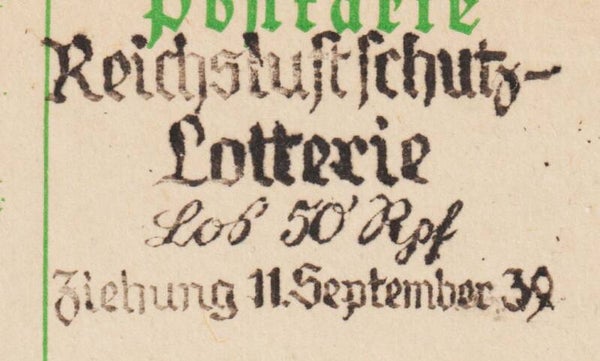 Postkarte
Reichsluftschutz-
Lotterie
Los 50' Rpf
Ziehung 11. September 39